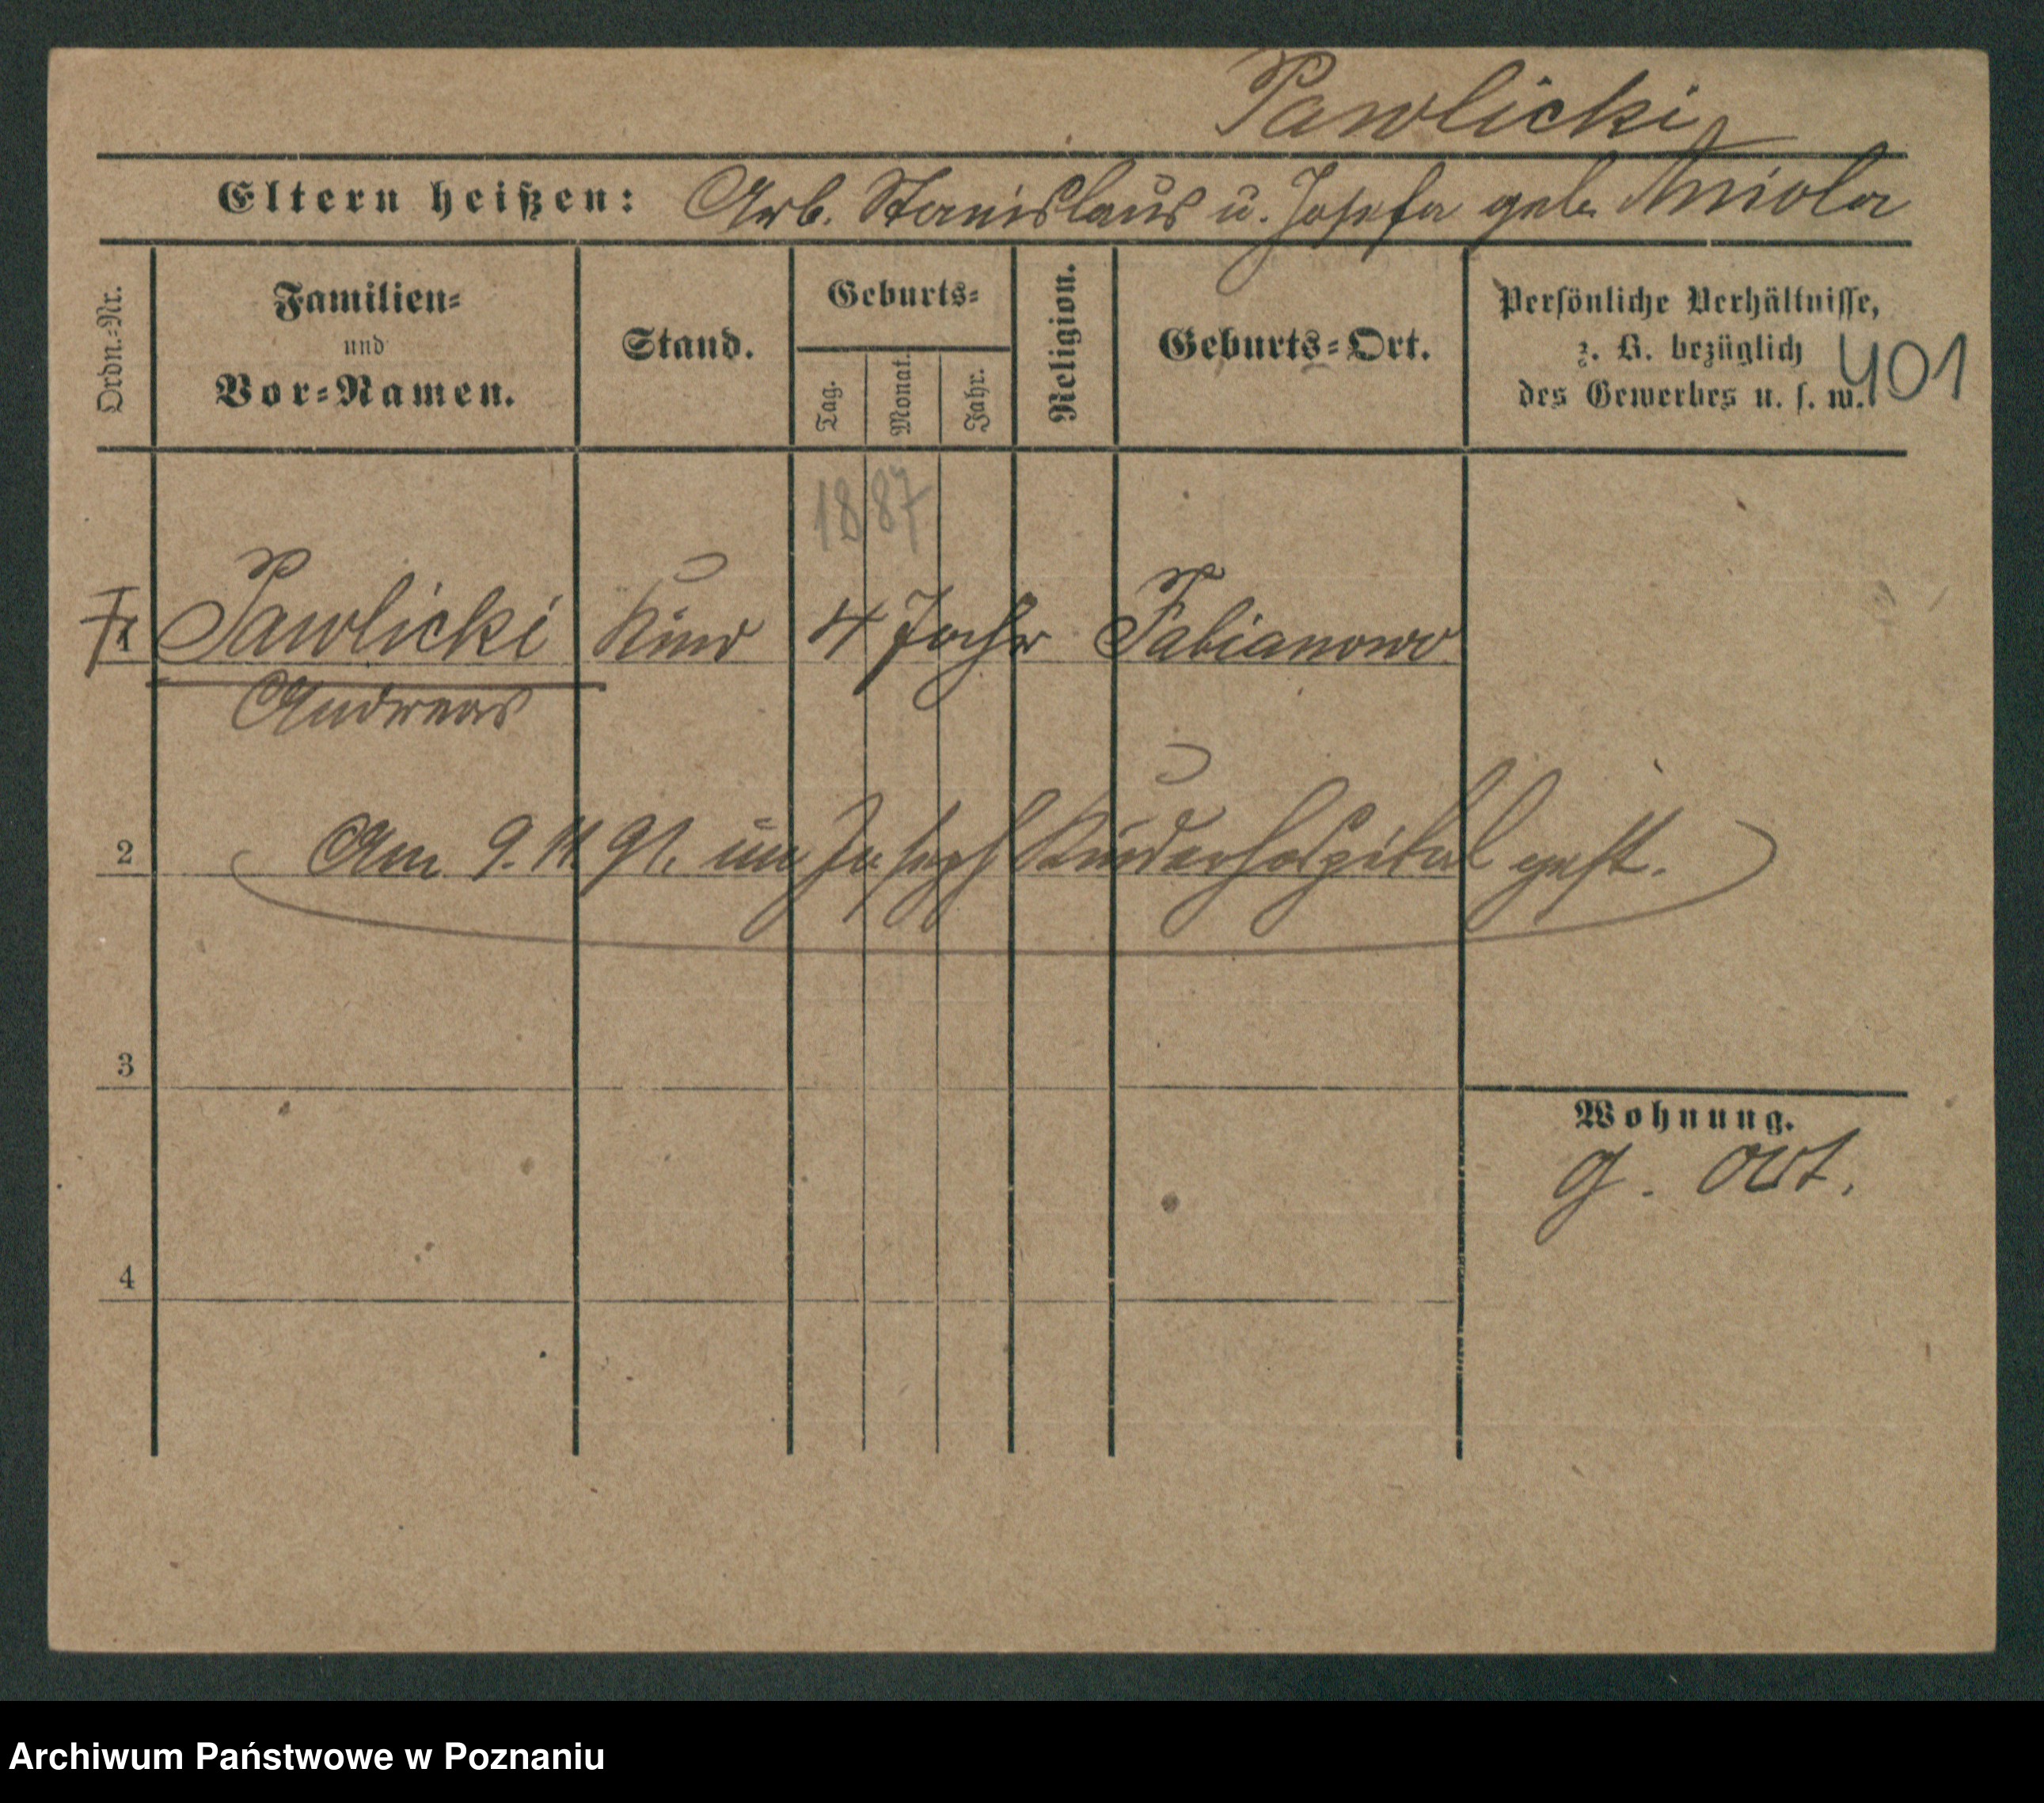 Pawlicki
Eltern heißen: Arb. Stanislaus u. Josefa geb. Aniola
Ordn.-Nr.
Familien-
und
Vor-Namen.
Stand.
Geburts-
Tag.
Monat.
Jahr.
Religion.
Geburts-Ort.
Persönliche Verhältnisse,
z. B. bezüglich
des Gewerbes u. s. w.
401
1887
1 Pawlicki Kind 4 Jahr Fabianowo
Andreas
2 Am 9. 11. 91. im Joseph Kinderhospital gest.
3
Wohnung.
g. Ort.
4
Archiwum Państwowe w Poznaniu